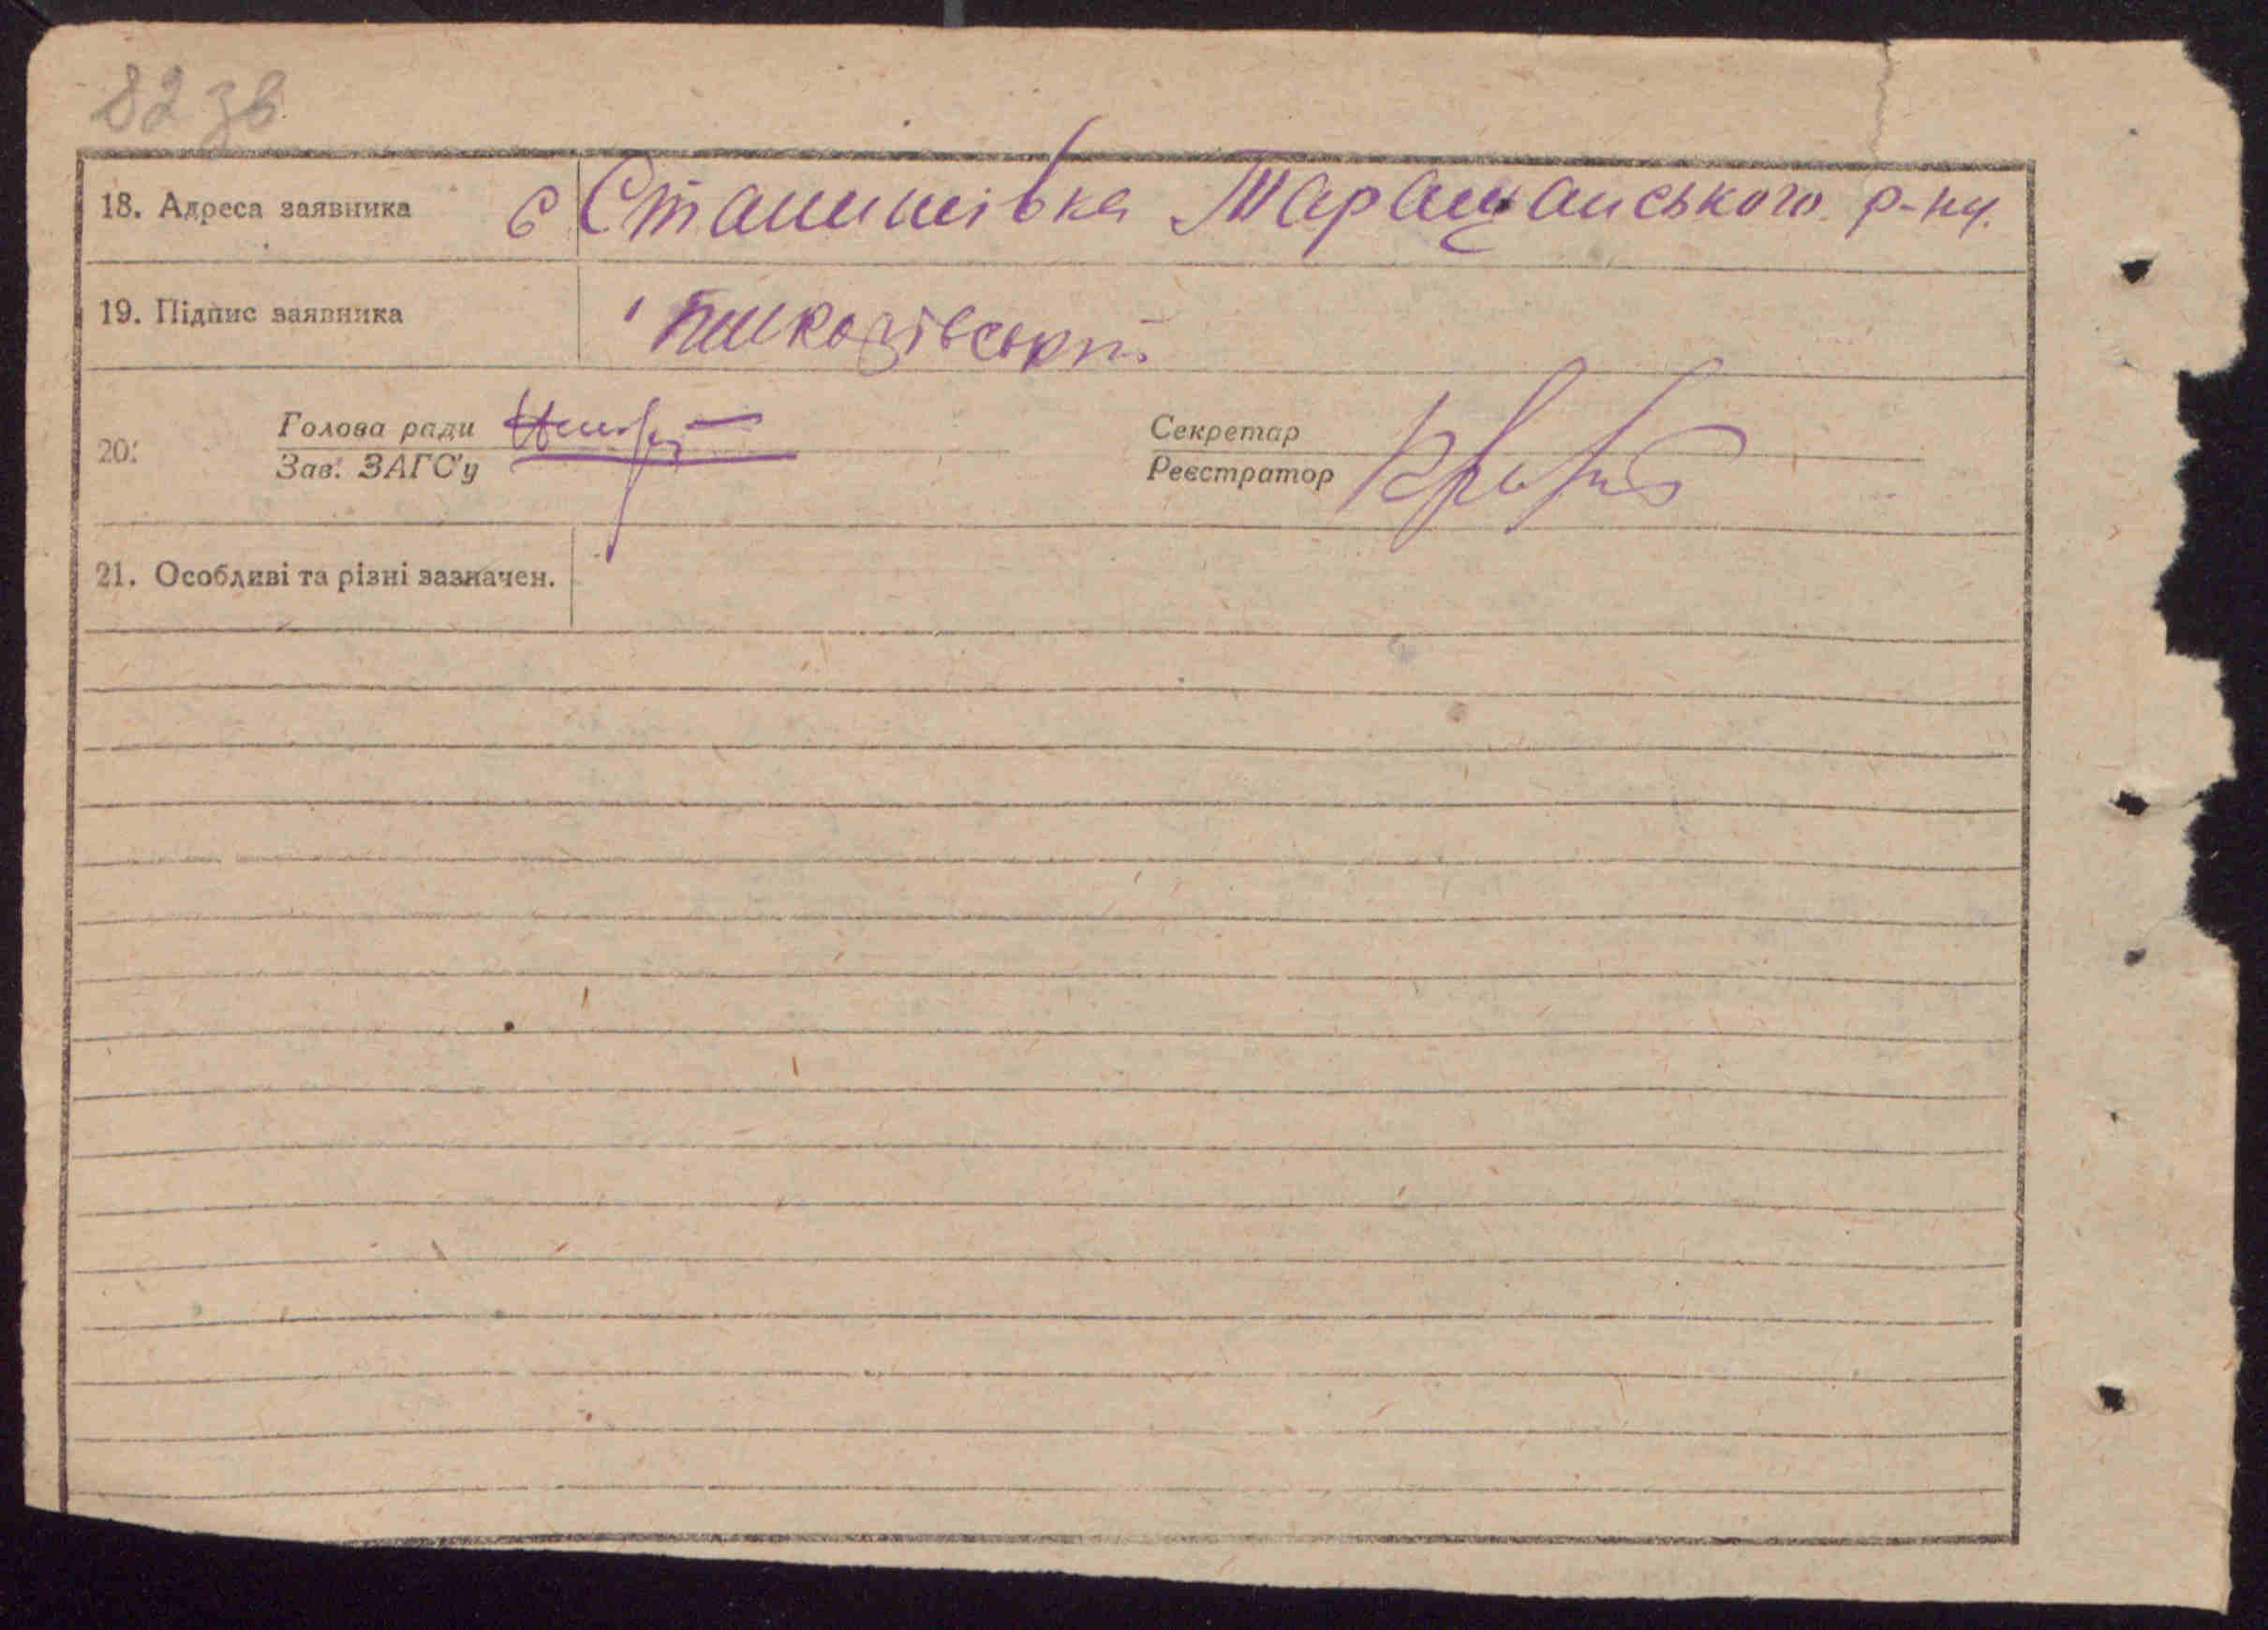 82 зв
18. Адреса заявника с Станишівка Таращанського р-ну.
19. Підпис заявника
20. Голова ради Секретар
Зав. ЗАГС'у Реєстратор
21. Особливі та різні зазначен.